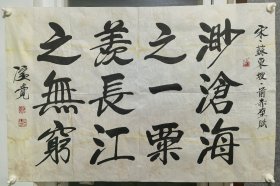 宋、蘇東坡、前赤壁賦
渺滄海
之一粟
羨長江
之無窮